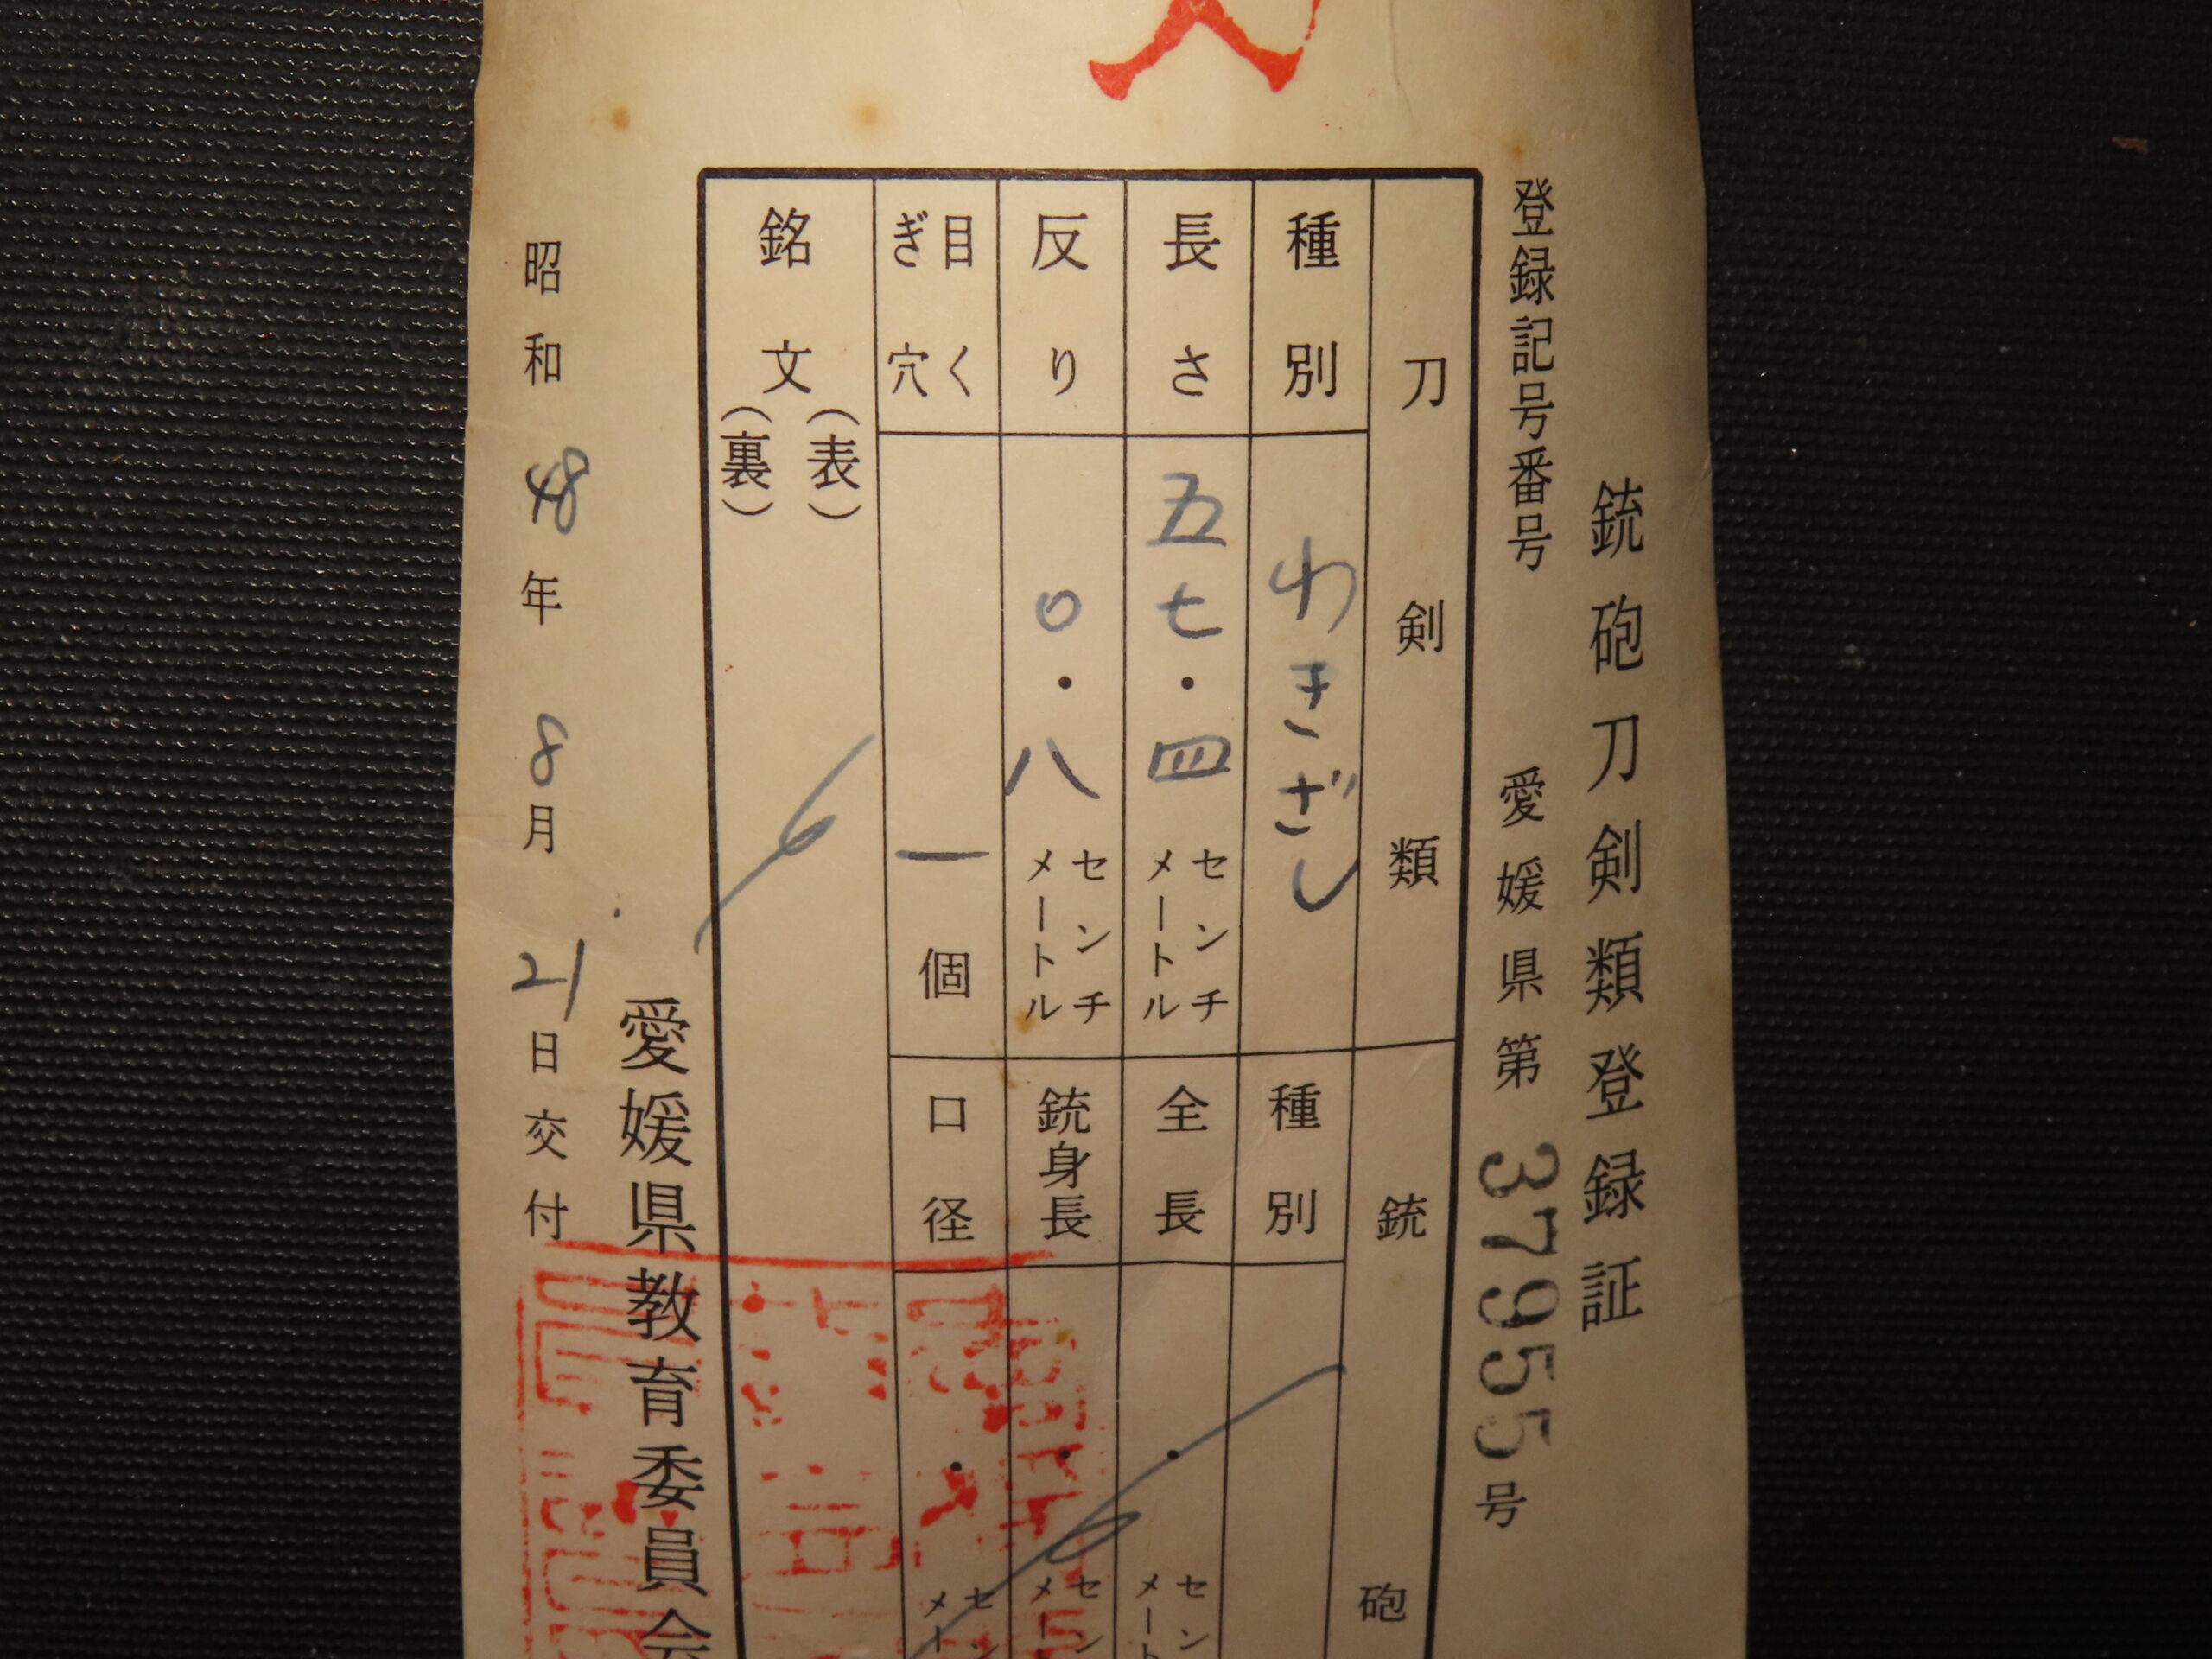 銃砲刀剣類登録証
登録記号番号 愛媛県第 37955号
刀剣類
種別 わきざし
長さ 五七・四 センチメートル
反り 〇・八 センチメートル
目くぎ穴 一個
銘文 (表)
(裏)
銃砲
種別
全長 ・ センチメート
銃身長 ・ センチメー
口径 ・ センチメー
愛媛県教育委員会
昭和48年8月21日交付